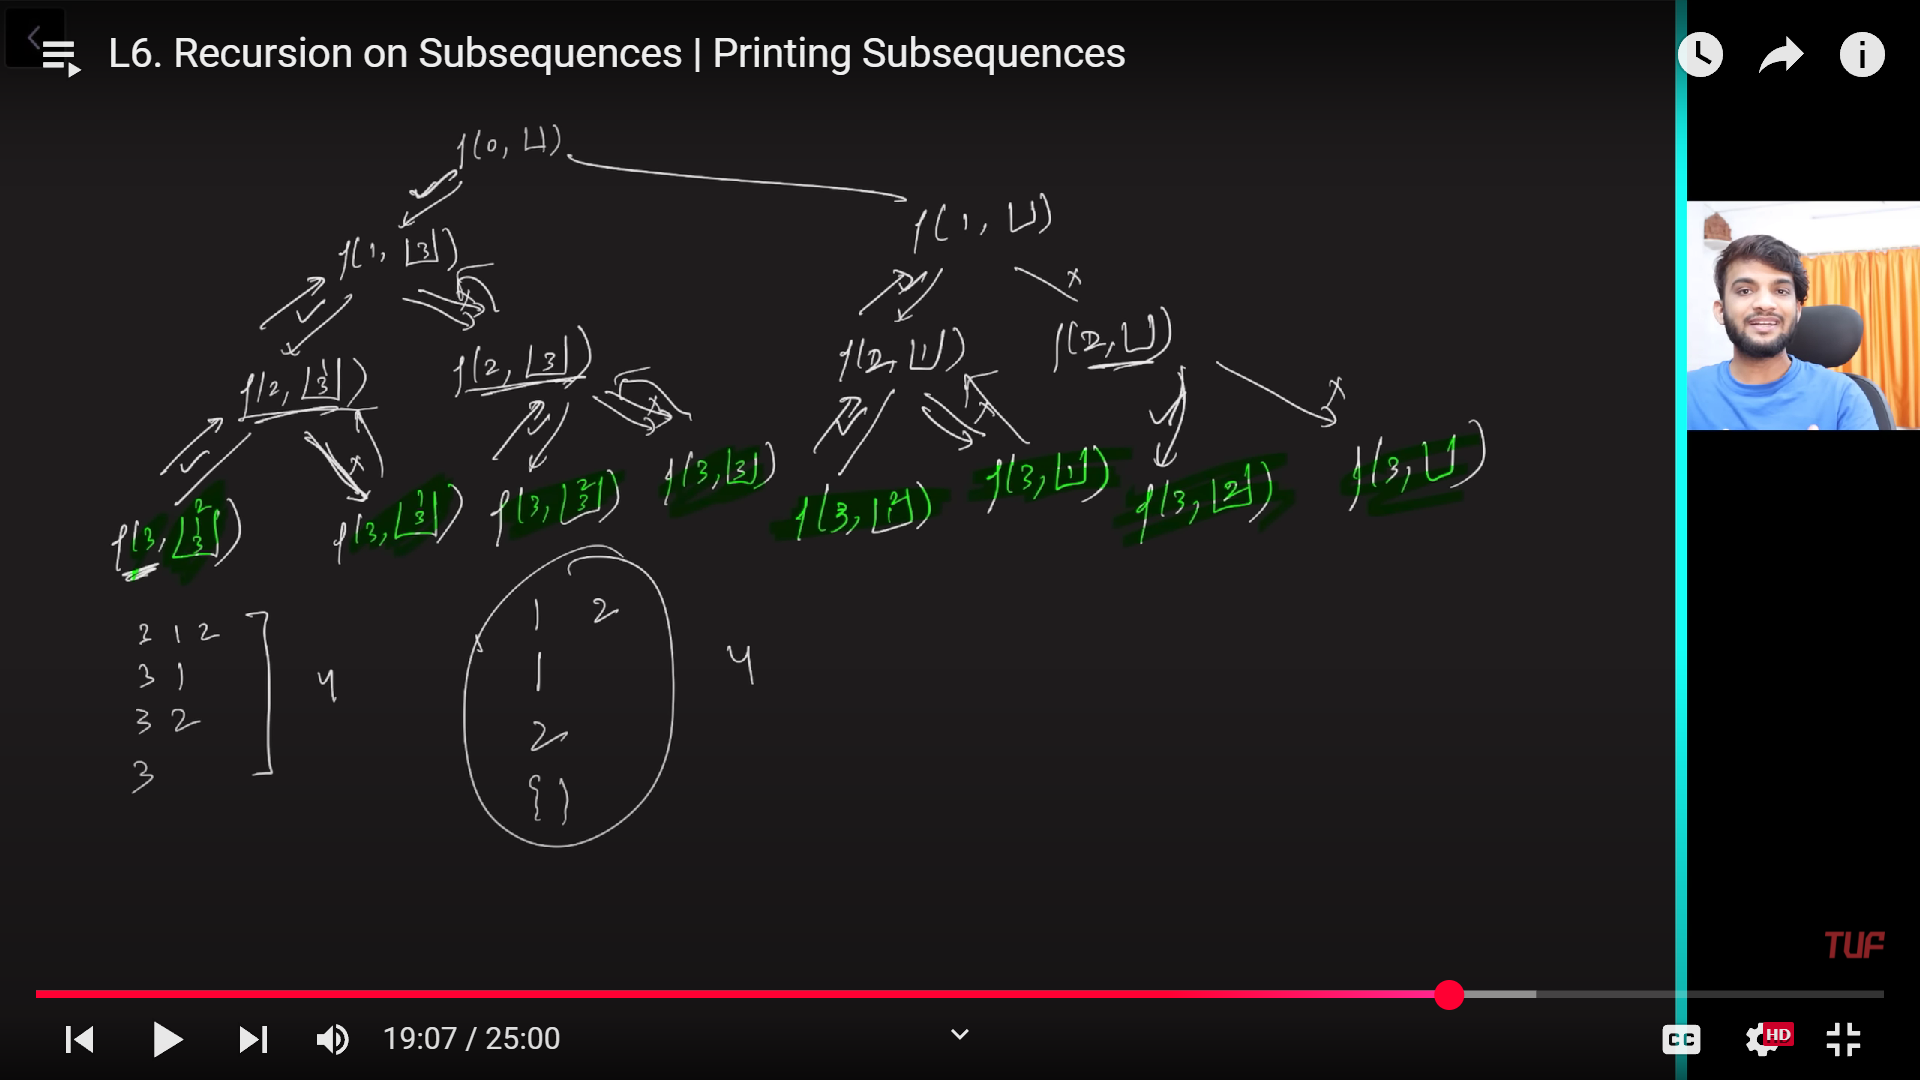 L6. Recursion on Subsequences | Printing Subsequences
f(0, ⊔)
f(1, ⊔)
f(1, |3|)
f(2, |1 3|)
f(2, |3|)
f(2, |1|)
f(2, ⊔)
f(3, |2 1 3|)
f(3, |1 3|)
f(3, |2 3|)
f(3, |3|)
f(3, |2 1|)
f(3, |1|)
f(3, |2|)
f(3, ⊔)
3 1 2
3 1
3 2
3
4
1 2
1
2
{ }
4
TUF
19:07 / 25:00
CC
HD